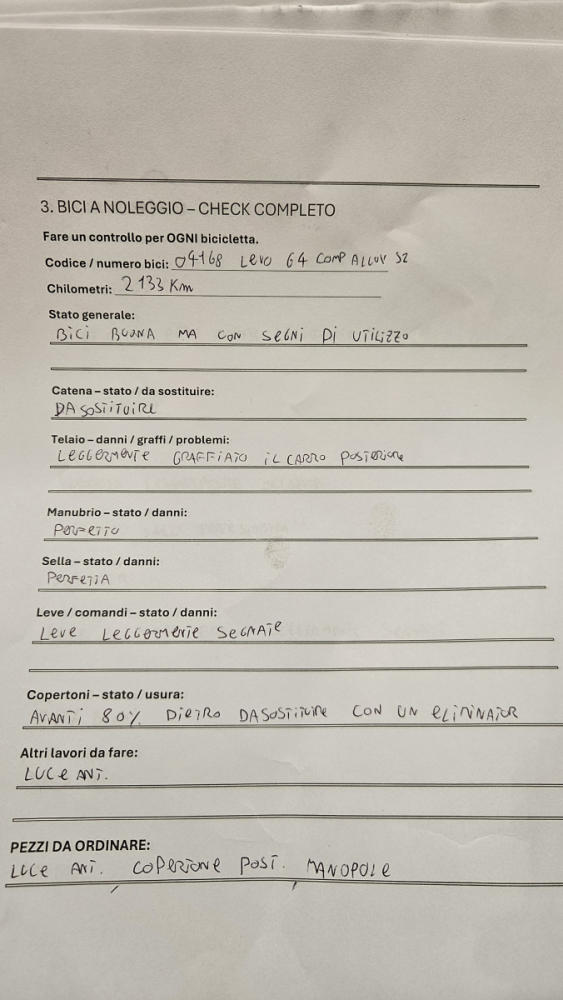 3. BICI A NOLEGGIO – CHECK COMPLETO
Fare un controllo per OGNI bicicletta.
Codice / numero bici: 04168 LEVO G4 COMP ALLOY S2
Chilometri: 2133 Km
Stato generale:
BICI BUONA MA CON SEGNI DI UTILIZZO
Catena – stato / da sostituire:
DA SOSTITUIRE
Telaio – danni / graffi / problemi:
LEGGERMENTE GRAFFIATO IL CARRO POSTERIORE
Manubrio – stato / danni:
PERFETTO
Sella – stato / danni:
PERFETTA
Leve / comandi – stato / danni:
LEVE LEGGERMENTE SEGNATE
Copertoni – stato / usura:
AVANTI 80% DIETRO DA SOSTITUIRE CON UN ELIMINATOR
Altri lavori da fare:
LUCE ANT.
PEZZI DA ORDINARE:
LUCE ANT. COPERTONE POST. MANOPOLE